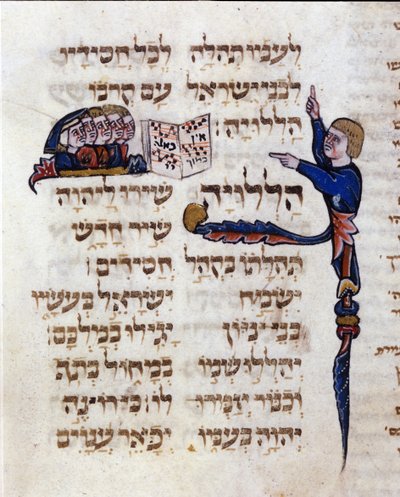 לְעַמּוֹ תְּהִלָּה לְכָל חֲסִידָיו
לִבְנֵי יִשְׂרָאֵל עַם קְרֹבוֹ
הַלְלוּיָהּ׃
אין
כמוך
באלה
יי
הַלְלוּיָהּ שִׁירוּ לַיהוָה
שִׁיר חָדָשׁ
תְּהִלָּתוֹ בִּקְהַל חֲסִידִים׃
יִשְׂמַח יִשְׂרָאֵל בְּעֹשָׂיו
בְּנֵי צִיּוֹן יָגִילוּ בְמַלְכָּם׃
יְהַלְלוּ שְׁמוֹ בְמָחוֹל בְּתֹף
וְכִנּוֹר יְזַמְּרוּ לוֹ כִּי רוֹצֶה
יְהוָה בְּעַמּוֹ יְפָאֵר עֲנָוִים